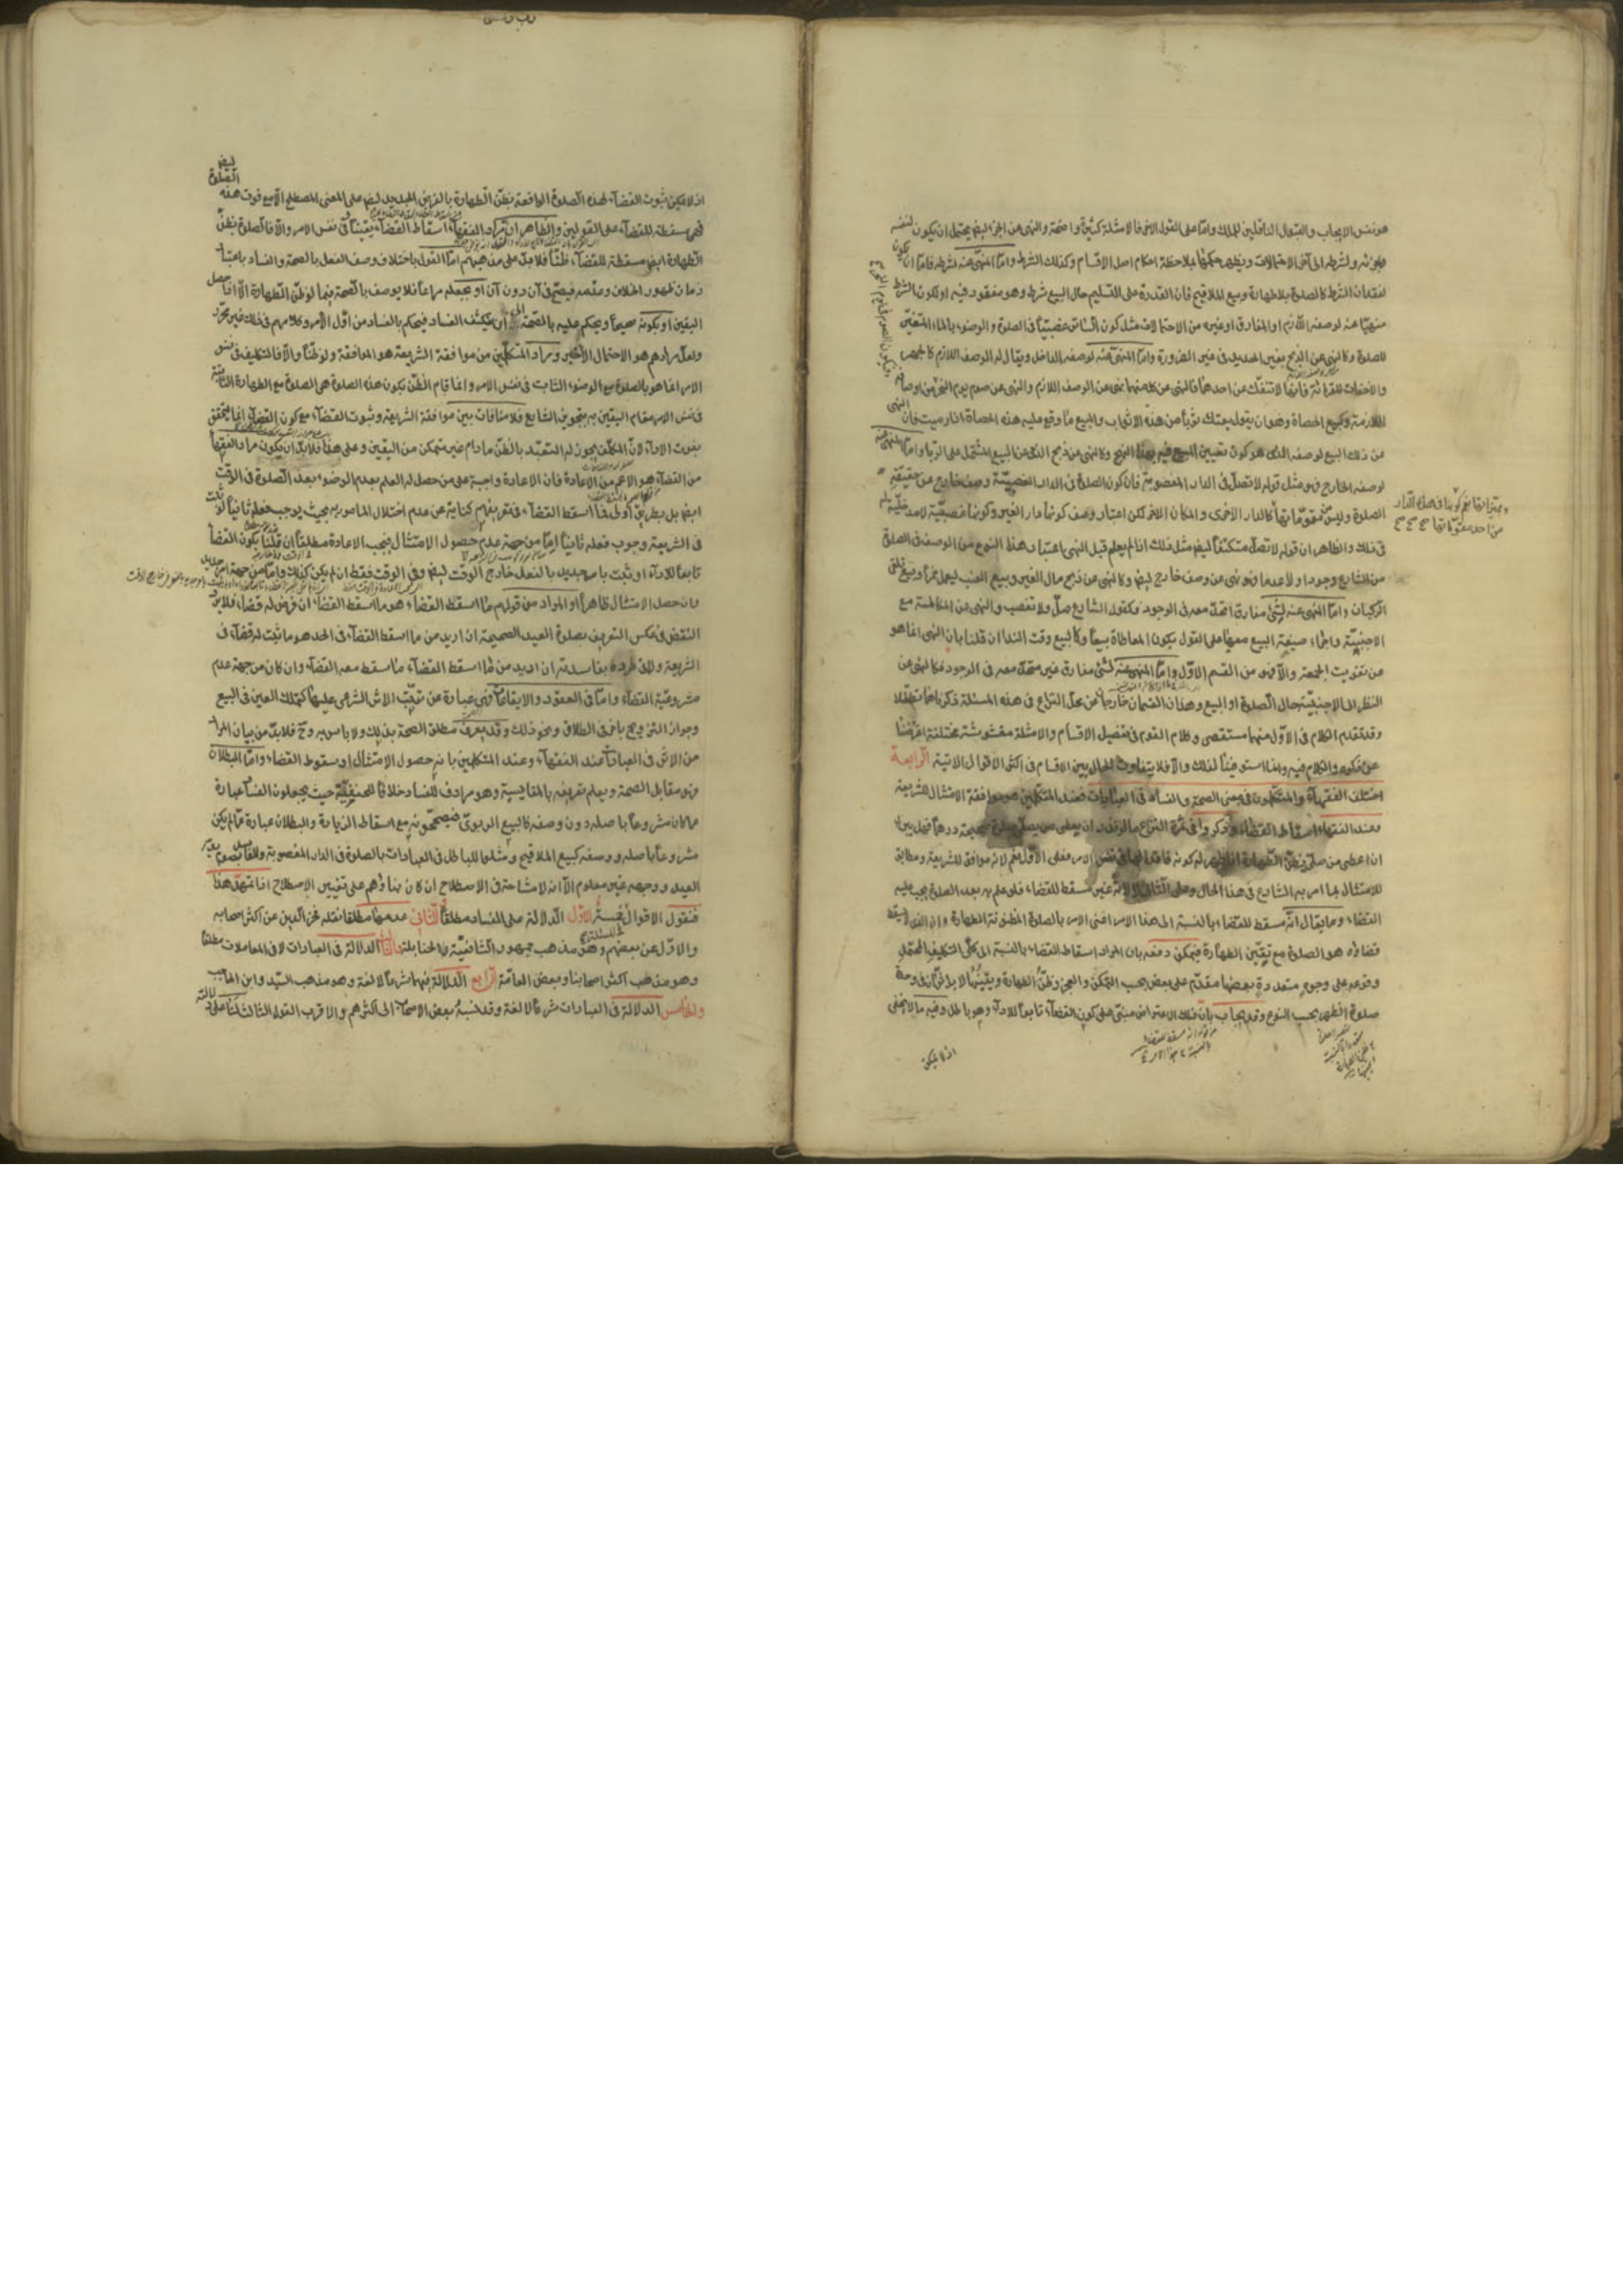 هو نفس الايجاب والقبول الناقلين للملك واما على القول الاخر فالامثلة كثيرة واضحة والنهى عن الجزء ايضا يحتمل ان يكون لنفسه
ولشرطه الى آخر الاحتمالات ويظهر حكمها بملاحظة احكام اصل الاقسام وكذلك الشرط واما المنهى عنه لشرطه فاما ان يكون
لفقدان الشرط كالصلوة بلا طهارة وبيع الملاقيح فان القدرة على التسليم حال البيع شرط وهو مفقود فيه او لكون الشرط
منهيا عنه لوصفه اللازم او المفارق او غيره من الاحتمالات مثل كون الساتر غصبيا فى الصلوة والوضوء بالماء المتغير
للصلوة وكالنهى عن الذبح بغير الحديد فى غير الضرورة واما المنهى عنه لوصفه الداخل ويقال له الوصف اللازم كالجهر
والاخفات للقرائة فانها لا تنفك عن احدهما فالنهى عن كل منهما نهى عن الوصف اللازم والنهى عن صوم يوم النحر
اللازمة وكبيع الحصاة وهو ان يقول بعتك ثوبا من هذه الاثواب والمبيع ما وقع عليه هذه الحصاة اذا رميت فان النهى
عن ذلك البيع لوصفه الذى هو كون تعيين المبيع فيه بهذا النهج وكالنهى عن ذبح الذمى عن البيع المشتمل على الربا واما المنهى عنه
لوصفه الخارج فهو مثل قوله لا تصل فى الدار المغصوبة فان كون الصلوة فى الدار المغصوبة وصف خارج عن حقيقة
الصلوة وليس من مقوماتها كالدار الاخرى والمكان الاخر لكن اعتبار وصف كونها دار الغير وكونها غصبية
فى ذلك والظاهر ان قوله لا تصل متكتفا ايضا مثل ذلك اذ لم يعلم قبل النهى اعتبار هذا النوع من الوصف فى الصلوة
من الشارع وجودا ولا عدما فهو نهى عن وصف خارج ايضا وكالنهى عن ذبح مال الغير وبيع العنب ليعمل خمرا وبيع تلقى
الركبان واما المنهى عنه لشىء مفارق اتحد معه فى الوجود فكقول الشارع صل ولا تغصب والنهى عن المكالمة مع
الاجنبية واجراء صيغة البيع معها على القول بكون المعاطاة بيعا وكالبيع وقت النداء ان قلنا بان النهى انما هو
عن تفويت الجمعة والا فهو من القسم الاول واما المنهى عنه لشىء مفارق غير متحد معه فى الوجود فكالنهى عن
النظر الى الاجنبية حال الصلوة او البيع وهذان القسمان خارجان عن محل النزاع فى هذه المسئلة ذكرناهما تطفلا
وقد تقدم الكلام فى الاول منهما مستقصى وكلام القوم فى تفصيل الاقسام والامثلة مغشوشة مختلفة
والا فلا يتفاوت الحال بين الاقسام فى اكثر الاقوال الاتية الرابعة
اختلف الفقهاء والمتكلمون فى معنى الصحة والفساد فى العبادات فعند المتكلمين هو موافقة الامتثال للشريعة
وعند الفقهاء اسقاط القضاء وذكروا فى ثمرة النزاع ما لو نذر ان يعطى من يصلى صلوة صحيحة درهما
اذا اعطى من صلى بظن الطهارة اذا ظهر له كونه فاقدا لها فى نفس الامر فعلى الاول نعم لانه موافق للشريعة ومطابق
للامتثال بما امر به الشارع فى هذا الحال وعلى الثانى لا لانه غير مسقط للقضاء فلو علم به بعد الصلوة يجب عليه
القضاء وما يقال انه مسقط للقضاء بالنسبة الى هذا الامر اعنى الامر بالصلوة المظنونة الطهارة وان الذى لا يسقط
قضاؤه هو الصلوة مع تيقن الطهارة فيمكن دفعه بان المراد اسقاط القضاء بالنسبة الى كلى التكليف المحتمل
وقوعه على وجوه متعددة بعضها مقدم على بعض بحسب التمكن والعجز وظن الطهارة ويقينها لا بد
صلوة الظهر بحسب النوع وقد يجاب بان ذلك الاعتراض مبتنى على كون القضاء تابعا للاداء وهو باطل وفيه ما لا يخفى
اذ لا يمكن
اذ لا يمكن ثبوت القضاء لهذه الصلوة الواقعة بظن الطهارة بالفرض الجديد ايضا على المعنى المصطلح الا مع فوت هذه الصلوة
فهى مسقطة للقضاء على القولين والظاهر ان مراد الفقهاء اسقاط القضاء يقينا فى نفس الامر والا فالصلوة بظن
الطهارة ايضا مسقطة للقضاء ظنا فلا بد على مذهبهم اما القول باختلاف وصف الفعل بالصحة والفساد باعتبار
زمان ظهور الخلاف وعدمه فيصح فى آن دون آن او يجعله مراعا فلا يوصف بالصحة فيما لو ظن الطهارة الا اذا حصل
اليقين او بكونه صحيحا ويحكم عليه بالصحة الى ان ينكشف الفساد فيحكم بالفساد من اول الامر وكلامهم فى ذلك غير محرر
ولعل مرادهم هو الاحتمال الاخير ومراد المتكلمين من موافقة الشريعة هو الموافقة ولو ظنا والا فالتكليف فى نفس
الامر انما هو بالصلوة مع الوضوء الثابت فى نفس الامر وانما قام الظن بكون هذه الصلوة هى الصلوة مع الطهارة الثابتة
فى نفس الامر مقام اليقين به بتجويز الشارع فلا منافات بين موافقة الشريعة وثبوت القضاء مع كون القضاء انما يتحقق
بفوت الاداء لان المكلف يجوز له التعبد بالظن ما دام غير متمكن من اليقين وعلى هذا فلا بد ان يكون مراد الفقهاء
من القضاء هو الاعم من الاعادة فان الاعادة واجبة على من حصل له العلم بعدم الوضوء بعد الصلوة فى الوقت
ايضا بل بطريق اولى فما اسقط القضاء فى تعريفهم كناية عن عدم اختلال المامور به بحيث يوجب فعله ثانيا لو ثبت
فى الشريعة وجوب فعله ثانيا اما من جهة عدم حصول الامتثال فيجب الاعادة مطلقا ان قلنا بكون القضاء
تابعا للاداء او ثبت بامر جديد بالفعل خارج الوقت ايضا وفى الوقت فقط ان لم يكن كذلك واما من جهة امر جديد
وان حصل الامتثال ظاهرا او المراد من قولهم ما اسقط القضاء هو ما اسقط القضاء ان فرض له قضاء فلا يرد
النقض فى عكس التعريف بصلوة العيد الصحيحة ان اريد من ما اسقط القضاء فى الحد هو ما ثبت له قضاء فى
الشريعة ولا فى طرده بفاسدته ان اريد من ما اسقط القضاء ما سقط معه القضاء وان كان من جهة عدم
مشروعية القضاء واما فى العقود والايقاعات فهى عبارة عن ترتب الاثر الشرعى عليها كتملك العين فى البيع
وجواز التزويج باخر فى الطلاق ونحو ذلك وقد يعرف مطلق الصحة بذلك ولا باس به وح فلا بد من بيان المراد
من الاثر فى العبادات عند الفقهاء وعند المتكلمين بانه حصول الامتثال او سقوط القضاء واما البطلان
فهو مقابل الصحة ويعلم تعريفه بالمقايسة وهو مرادف للفساد خلافا للحنفية حيث يجعلون الفساد عبارة
عما كان مشروعا باصله دون وصفه كالبيع الربوى فيصححونه مع اسقاط الزيادة والبطلان عبارة عما لم يكن
مشروعا باصله ووصفه كبيع الملاقيح ومثلوا للباطل فى العبادات بالصلوة فى الدار المغصوبة وللفاسد بصوم يوم
العيد ووجهه غير معلوم الا انه لا مشاحة فى الاصطلاح ان كان بناؤهم على تغيير الاصطلاح اذا تمهد هذا
فنقول الاقوال خمسة الاول الدلالة على الفساد مطلقا الثانى عدمها مطلقا نقله فخر الدين عن اكثر اصحابه
والاول عن بعضهم وهو مذهب جمهور الشافعية والحنابلة الثالث الدلالة فى العبادات لا فى المعاملات مطلقا
وهو مذهب اكثر اصحابنا وبعض العامة الرابع الدلالة فيهما شرعا لا لغة وهو مذهب السيد وابن الحاجب
والخامس الدلالة فى العبادات شرعا لا لغة وقد نسبه بعض الاصحاب الى اكثرهم والاقرب القول الثالث لنا على دلالته